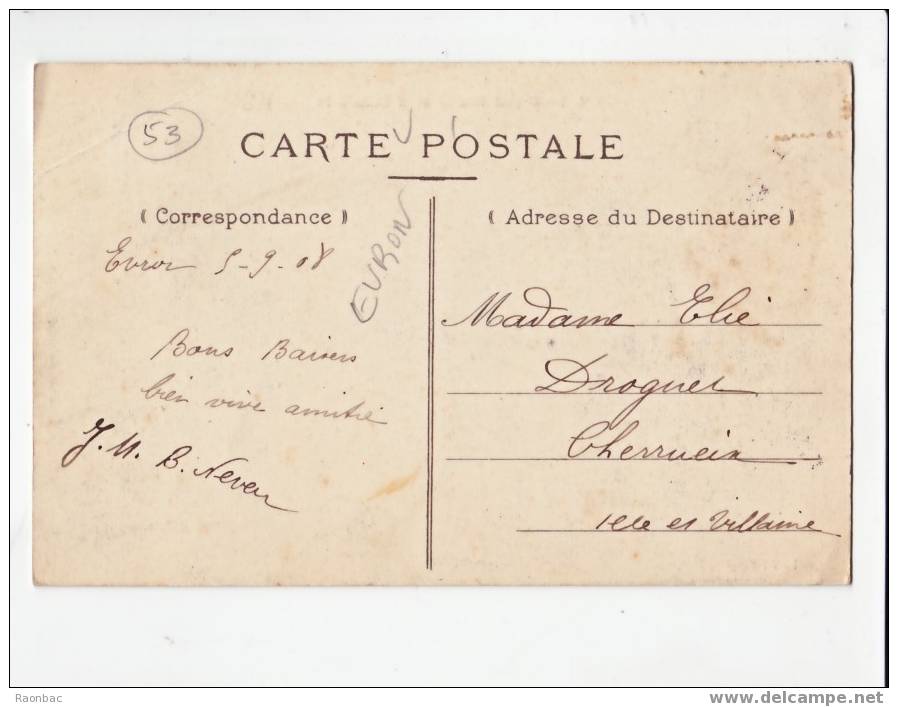 53
CARTE POSTALE
( Correspondance )
Evron 5-9-08
EVRON
Bons Baisers
bien vive amitié
J. M. B. Neveu
( Adresse du Destinataire )
Madame Elie
Droguet
Cherrueix
Ille et Villaine
Raonbac
www.delcampe.net